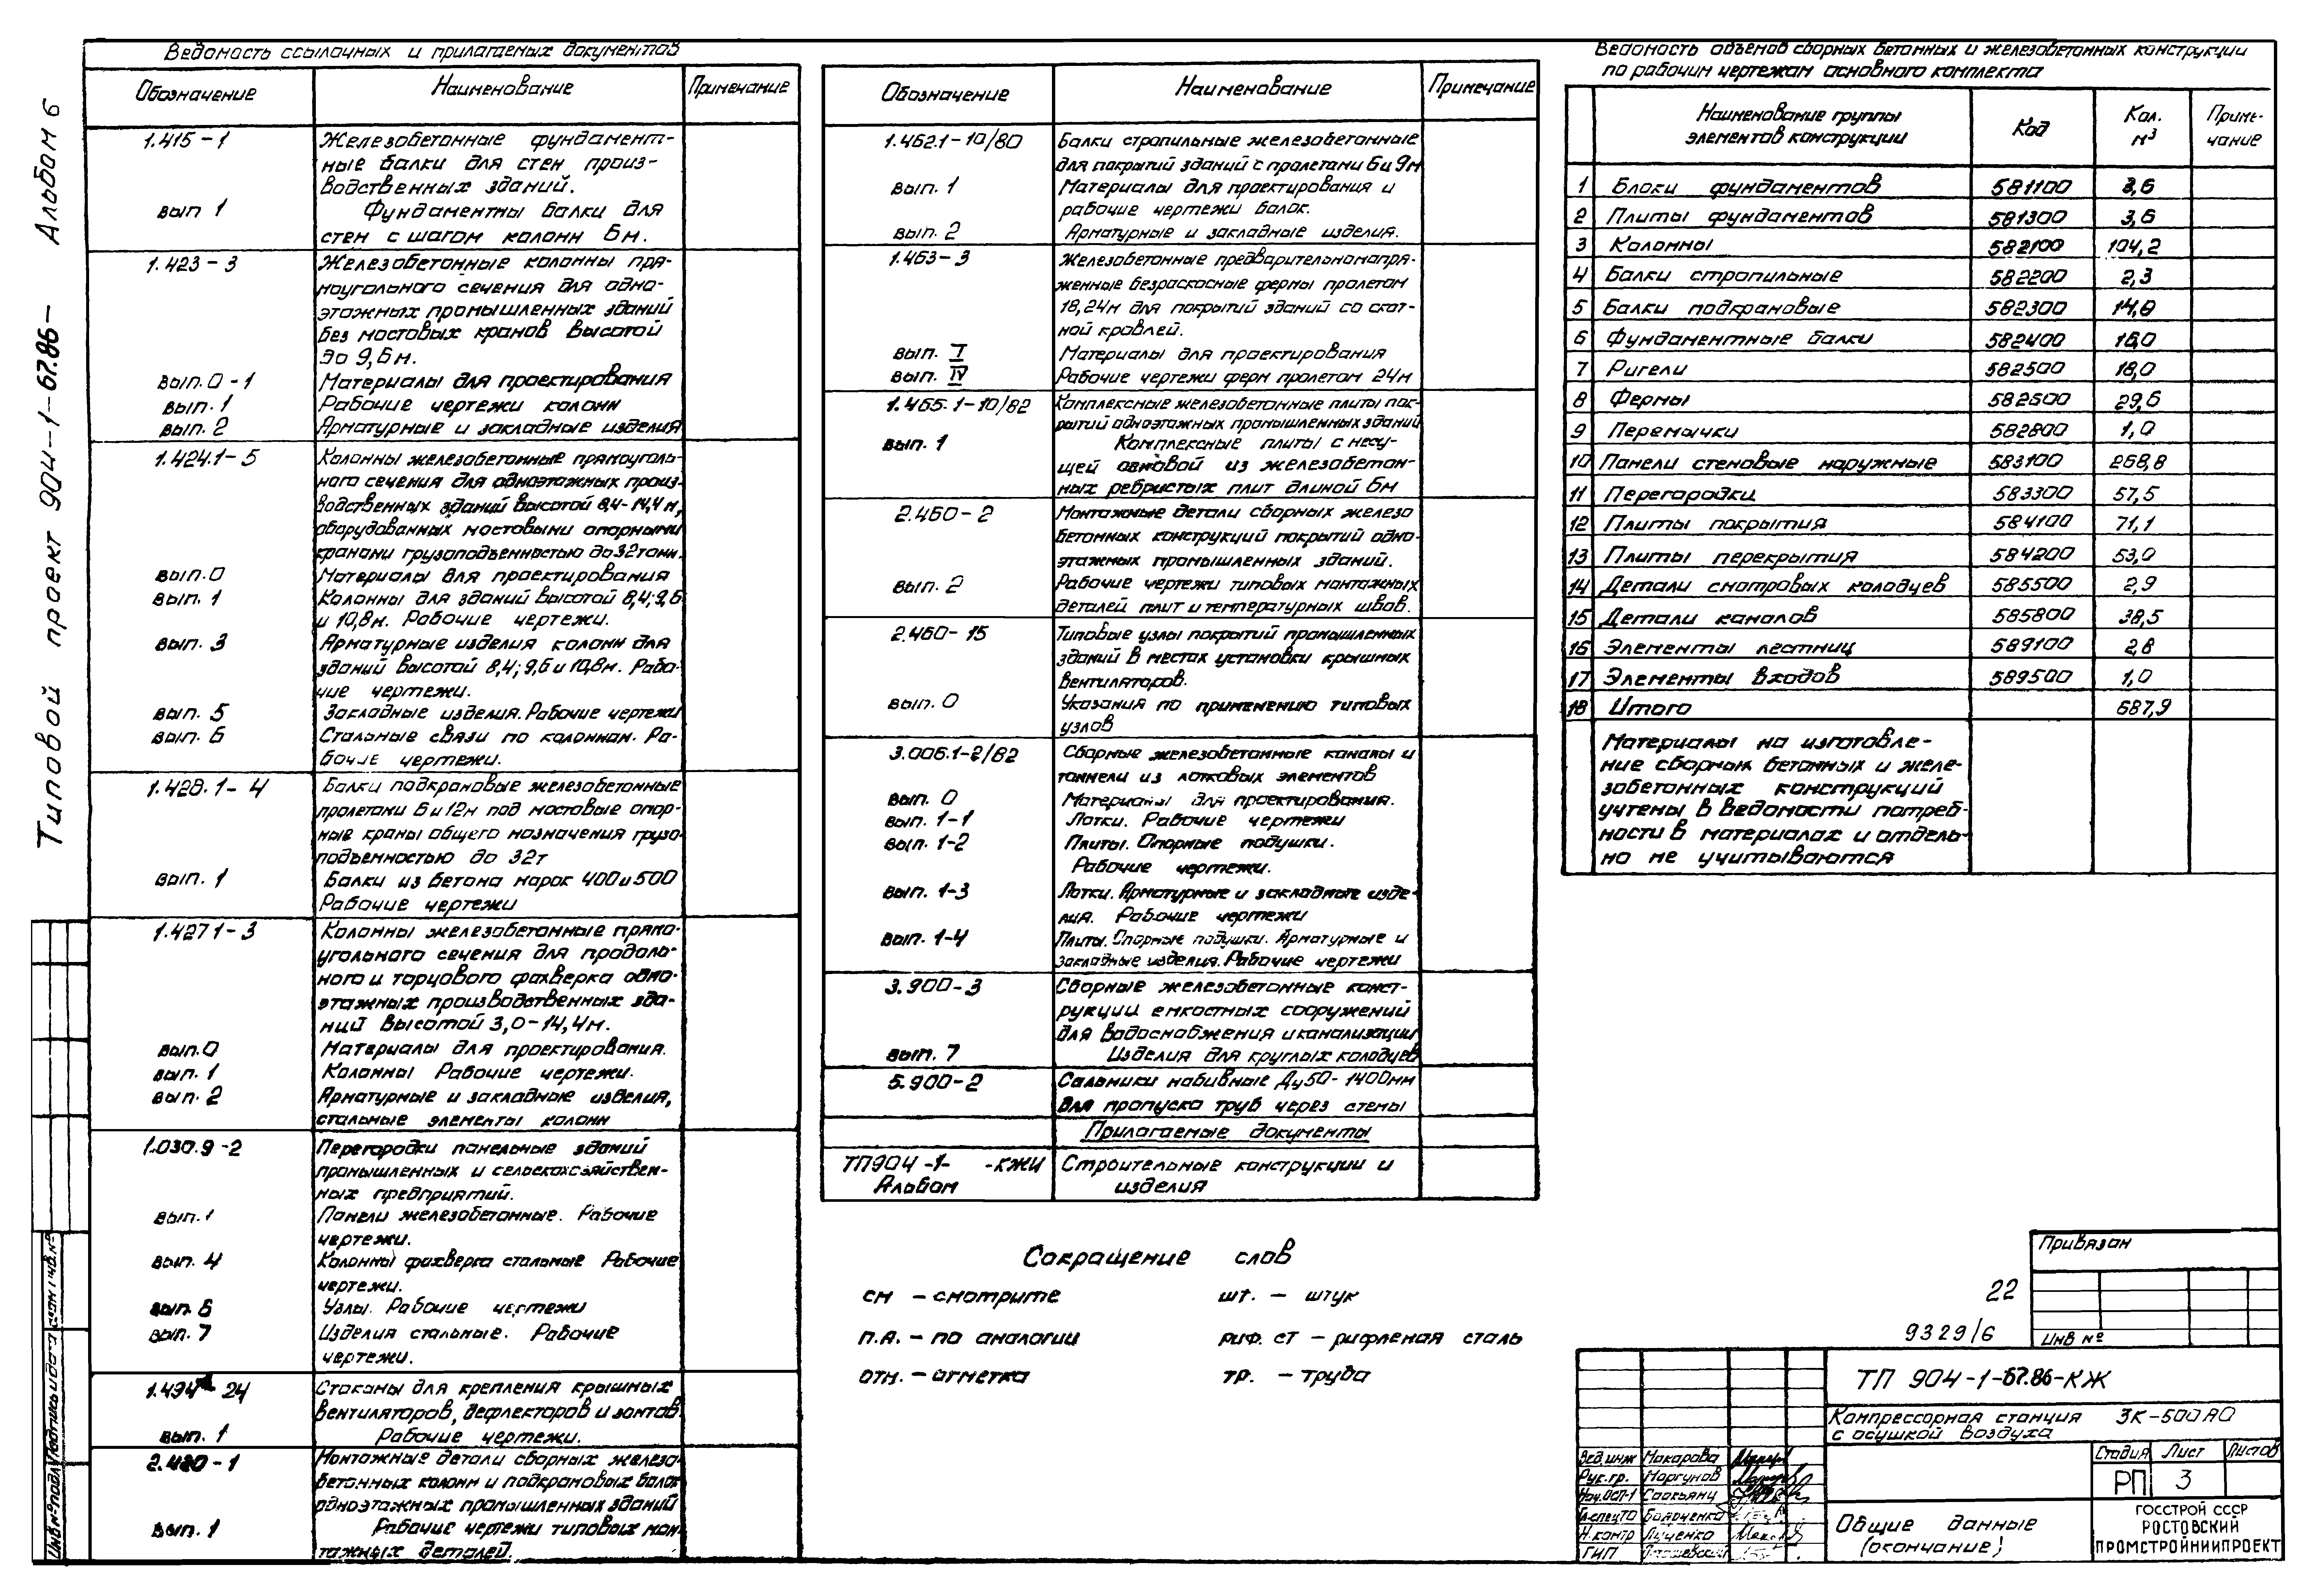 Типовой проект 904-1-67.86- Альбом 6
Ведомость ссылочных и прилагаемых документов
Обозначение Наименование Примечание
1.415-1 Железобетонные фундамент-
ные балки для стен произ-
водственных зданий.
вып 1 Фундаментны балки для
стен с шагом колонн 6м.
1.423-3 Железобетонные колонны пря-
моугольного сечения для одно-
этажных промышленных зданий
без мостовых кранов высотой
до 9,6м.
вып.0-1 Материалы для проектирования
вып.1 Рабочие чертежи колонн
вып.2 Арматурные и закладные изделия
1.424.1-5 Колонны железобетонные прямоуголь-
ного сечения для одноэтажных произ-
водственных зданий высотой 8,4-14,4м,
оборудованных мостовыми опорными
кранами грузоподъемностью до 32тонн.
вып.0 Материалы для проектирования
вып.1 Колонны для зданий высотой 8,4; 9,6
и 10,8м. Рабочие чертежи.
вып.3 Арматурные изделия колонн для
зданий высотой 8,4; 9,6 и 10,8м. Рабо-
чие чертежи.
вып.5 Закладные изделия. Рабочие чертежи
вып.6 Стальные связи по колоннам. Ра-
бочие чертежи.
1.428.1-4 Балки подкрановые железобетонные
пролетами 6 и 12м под мостовые опор-
ные краны общего назначения грузо-
подъемностью до 32т
вып.1 Балки из бетона марок 400 и 500
Рабочие чертежи
1.427.1-3 Колонны железобетонные прямо-
угольного сечения для продоль-
ного и торцового фахверка одно-
этажных производственных зда-
ний высотой 3,0-14,4м.
вып.0 Материалы для проектирования.
вып.1 Колонны Рабочие чертежи.
вып.2 Арматурные и закладные изделия,
стальные элементы колонн
1.030.9-2 Перегородки панельные зданий
промышленных и сельскохозяйствен-
ных предприятий.
вып.1 Панели железобетонные. Рабочие
чертежи.
вып.4 Колонны фахверка стальные Рабочие
чертежи.
вып.6 Узлы. Рабочие чертежи
вып.7 Изделия стальные. Рабочие
чертежи.
1.494-24 Стаканы для крепления крышных
вентиляторов, дефлекторов и зонтов.
вып.1 Рабочие чертежи.
2.420-1 Монтажные детали сборных железо-
бетонных колонн и подкрановых балок
одноэтажных промышленных зданий
вып.1 Рабочие чертежи типовых мон-
тажных деталей.
Обозначение Наименование Примечание
1.462.1-10/80 Балки стропильные железобетонные
для покрытий зданий с пролетами 6 и 9м
вып.1 Материалы для проектирования и
рабочие чертежи балок.
вып.2 Арматурные и закладные изделия.
1.463-3 Железобетонные предварительнонапря-
женные безраскосные фермы пролетом
18,24м для покрытий зданий со скат-
ной кровлей.
вып. I Материалы для проектирования
вып. IV Рабочие чертежи ферм пролетом 24м
1.465.1-10/82 Комплексные железобетонные плиты пок-
рытий одноэтажных промышленных зданий
вып.1 Комплексные плиты с несу-
щей основой из железобетон-
ных ребристых плит длиной 6м
2.460-2 Монтажные детали сборных железо
бетонных конструкций покрытий одно-
этажных промышленных зданий.
вып.2 Рабочие чертежи типовых монтажных
деталей плит и температурных швов.
2.460-15 Типовые узлы покрытий промышленных
зданий в местах установки крышных
вентиляторов.
вып.0 Указания по применению типовых
узлов
3.006.1-2/82 Сборные железобетонные каналы и
тоннели из лотковых элементов
вып.0 Материалы для проектирования.
вып.1-1 Лотки. Рабочие чертежи
вып.1-2 Плиты. Опорные подушки.
Рабочие чертежи.
вып.1-3 Лотки. Арматурные и закладные изде-
лия. Рабочие чертежи
вып.1-4 Плиты. Опорные подушки. Арматурные и
закладные изделия. Рабочие чертежи
3.900-3 Сборные железобетонные конст-
рукции емкостных сооружений
для водоснабжения и канализации
вып.7 Изделия для круглых колодцев
5.900-2 Сальники набивные Ду50-1400мм
для пропуска труб через стены
Прилагаемые документы
ТП904-1- -КЖИ Строительные конструкции и
Альбом изделия
Сокращение слов
см - смотрите шт. - штук
п.А. - по аналогии риф. ст - рифленая сталь
отм. - отметка тр. - труба
Ведомость объемов сборных бетонных и железобетонных конструкции
по рабочим чертежам основного комплекта
Наименование группы элементов конструкции Код Кол. м³ Приме-чание
1 Блоки фундаментов 581100 3,6
2 Плиты фундаментов 581300 3,6
3 Колонны 582100 104,2
4 Балки стропильные 582200 2,3
5 Балки подкрановые 582300 14,0
6 Фундаментные балки 582400 16,0
7 Ригели 582500 18,0
8 Фермы 582600 29,6
9 Перемычки 582800 1,0
10 Панели стеновые наружные 583100 268,8
11 Перегородки 583300 57,5
12 Плиты покрытия 584100 71,1
13 Плиты перекрытия 584200 53,0
14 Детали смотровых колодцев 585500 2,9
15 Детали каналов 585800 38,5
16 Элементы лестниц 589100 2,8
17 Элементы входов 589500 1,0
18 Итого 687,9
Материалы на изготовле-
ние сборных бетонных и желе-
зобетонных конструкций
учтены в ведомости потреб-
ности в материалах и отдель-
но не учитываются
Привязан
22
9329/6
Инв №
ТП 904-1-67.86-КЖ
Компрессорная станция 3К-500АО
с осушкой воздуха
Стадия Лист Листов
РП 3
Общие данные
(окончание)
ГОССТРОЙ СССР
РОСТОВСКИЙ
ПРОМСТРОЙНИИПРОЕКТ
Вед.инж Макарова
Рук.гр. Моргунов
Нач.ОСП-1 Саакьянц
Н.контр
ГИП
Инв № подл. Подпись и дата